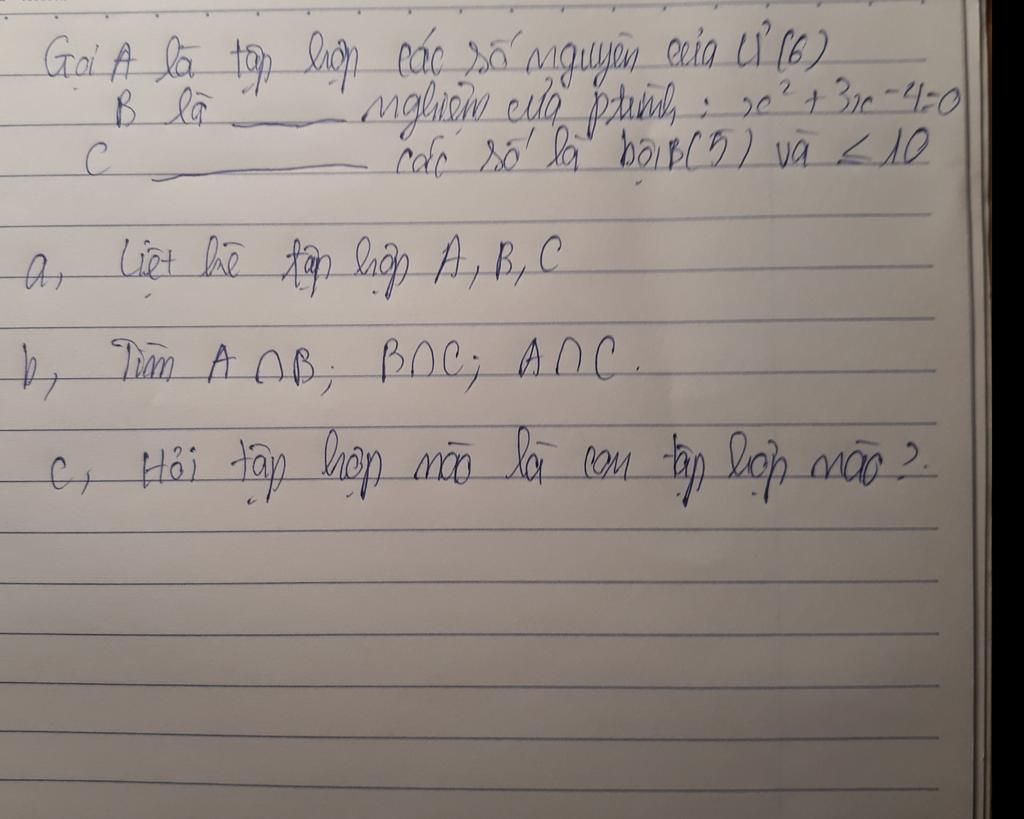 Gọi A là tập hợp các số nguyên của Ư(6)
B là ____ nghiệm của ptrình : x² + 3x - 4 = 0
C ____ các số là bội B(5) và < 10
a, Liệt kê tập hợp A, B, C
b, Tìm A ∩ B; B ∩ C; A ∩ C.
c, Hỏi tập hợp nào là con tập hợp nào?